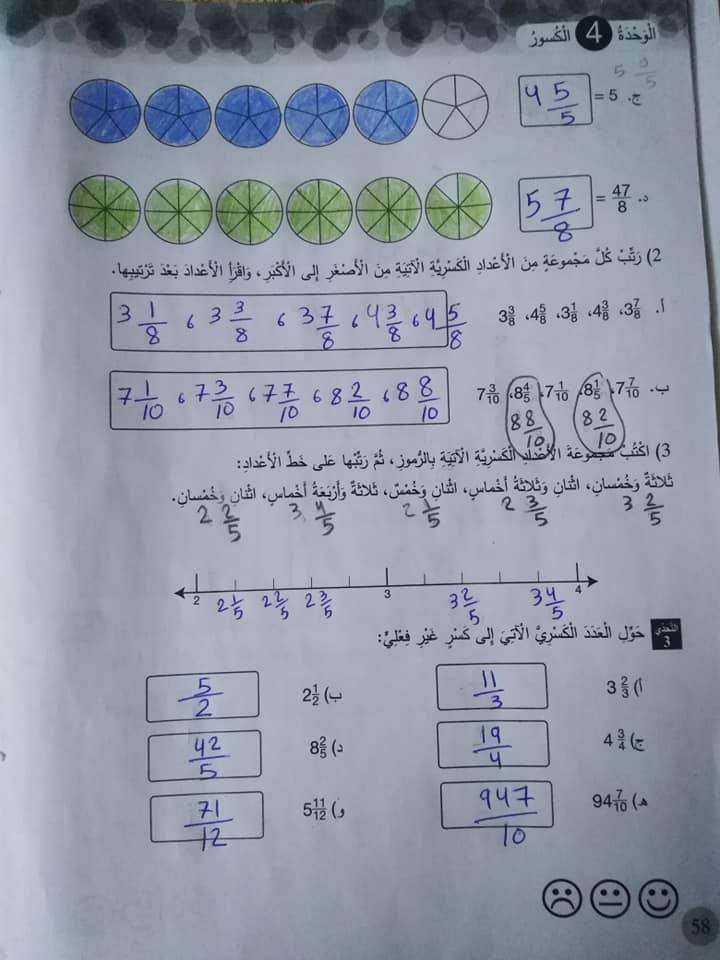 الْوَحْدَةُ 4 الْكُسورُ
5 0/5
ج. 5 = 4 5/5
د. 47/8 = 5 7/8
2) رَتِّبْ كُلَّ مَجْموعَةٍ مِنَ الْأَعْدادِ الْكَسْرِيَّةِ الْآتِيَةِ مِنَ الْأَصْغَرِ إلى الْأَكْبَرِ، وَاقْرَأِ الْأَعْدادَ بَعْدَ تَرْتيبِها.
أ. 3 7/8، 4 3/8، 3 1/8، 4 5/8، 3 3/8
3 1/8 ، 3 3/8 ، 3 7/8 ، 4 3/8 ، 4 5/8
ب. 7 7/10، 8 1/5، 7 1/10، 8 4/5، 7 3/10
8 2/10 8 8/10
7 1/10 ، 7 3/10 ، 7 7/10 ، 8 2/10 ، 8 8/10
3) اكْتُبْ مَجْموعَةَ الْأَعْدادِ الْكَسْرِيَّةِ الْآتِيَةِ بِالرُّموزِ، ثُمَّ رَتِّبْها عَلى خَطِّ الْأَعْدادِ:
ثَلاثَةٌ وَخُمْسانِ، اثْنانِ وَثَلاثَةُ أَخْماسٍ، اثْنانِ وَخُمْسٌ، ثَلاثَةٌ وَأَرْبَعَةُ أَخْماسٍ، اثْنانِ وَخُمْسانِ.
3 2/5 2 3/5 2 1/5 3 4/5 2 2/5
2 3 4
2 1/5 2 2/5 2 3/5 3 2/5 3 4/5
التَّحَدّي 3 حَوِّلِ الْعَدَدَ الْكَسْرِيَّ الْآتِيَ إلى كَسْرٍ غَيْرِ فِعْلِيٍّ:
أ) 3 2/3 11/3 ب) 2 1/2 5/2
ج) 4 3/4 19/4 د) 8 2/5 42/5
هـ) 94 7/10 947/10 و) 5 11/12 71/12
58